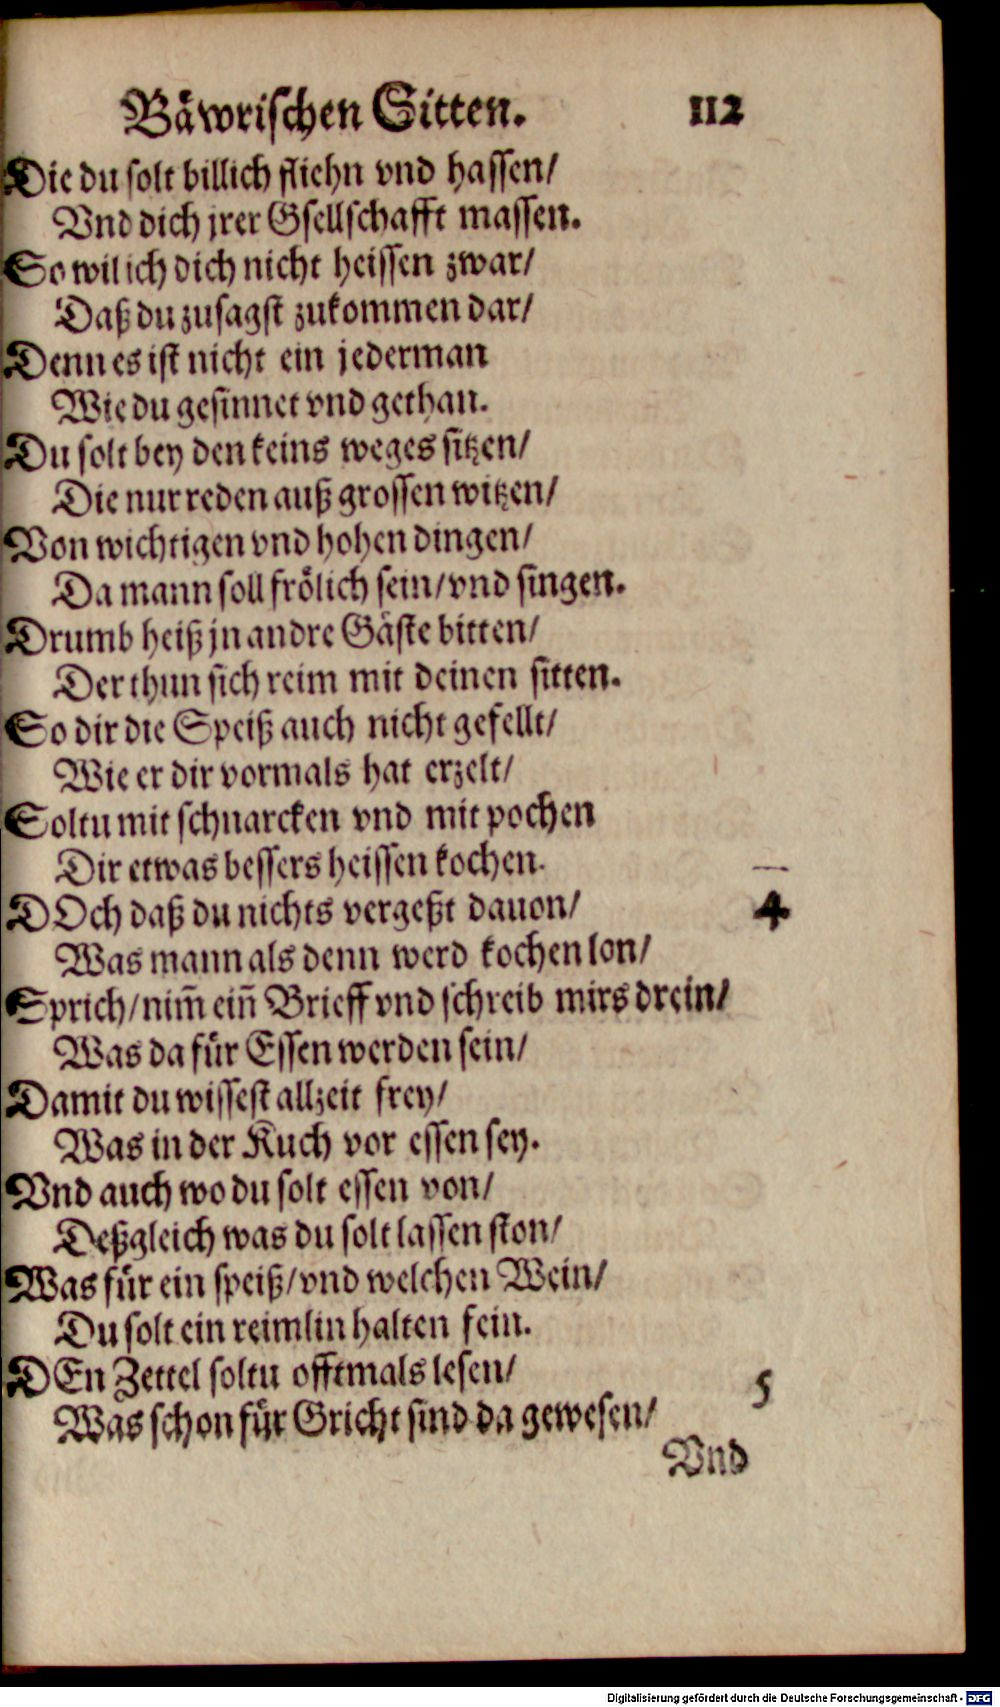 Bäwrischen Sitten. 112
Die du solt billich fliehn vnd hassen/
Vnd dich jrer Gsellschafft massen.
So wil ich dich nicht heissen zwar/
Daß du zusagst zukommen dar/
Denn es ist nicht ein jederman
Wie du gesinnet vnd gethan.
Du solt bey den keins weges sitzen/
Die nur reden auß grossen witzen/
Von wichtigen vnd hohen dingen/
Da mann soll frölich sein/vnd singen.
Drumb heiß jn andre Gäste bitten/
Der thun sich reim mit deinen sitten.
So dir die Speiß auch nicht gefellt/
Wie er dir vormals hat erzelt/
Soltu mit schnarcken vnd mit pochen
Dir etwas bessers heissen kochen.
DOch daß du nichts vergeßt dauon/ 4
Was mann als denn werd kochen lon/
Sprich/nim̃ ein̄ Brieff vnd schreib mirs drein/
Was da für Essen werden sein/
Damit du wissest allzeit frey/
Was in der Kuch vor essen sey.
Vnd auch wo du solt essen von/
Deßgleich was du solt lassen ston/
Was für ein speiß/vnd welchen Wein/
Du solt ein reimlin halten fein.
DEn Zettel soltu offtmals lesen/ 5
Was schon für Gricht sind da gewesen/
Vnd
Digitalisierung gefördert durch die Deutsche Forschungsgemeinschaft - DFG